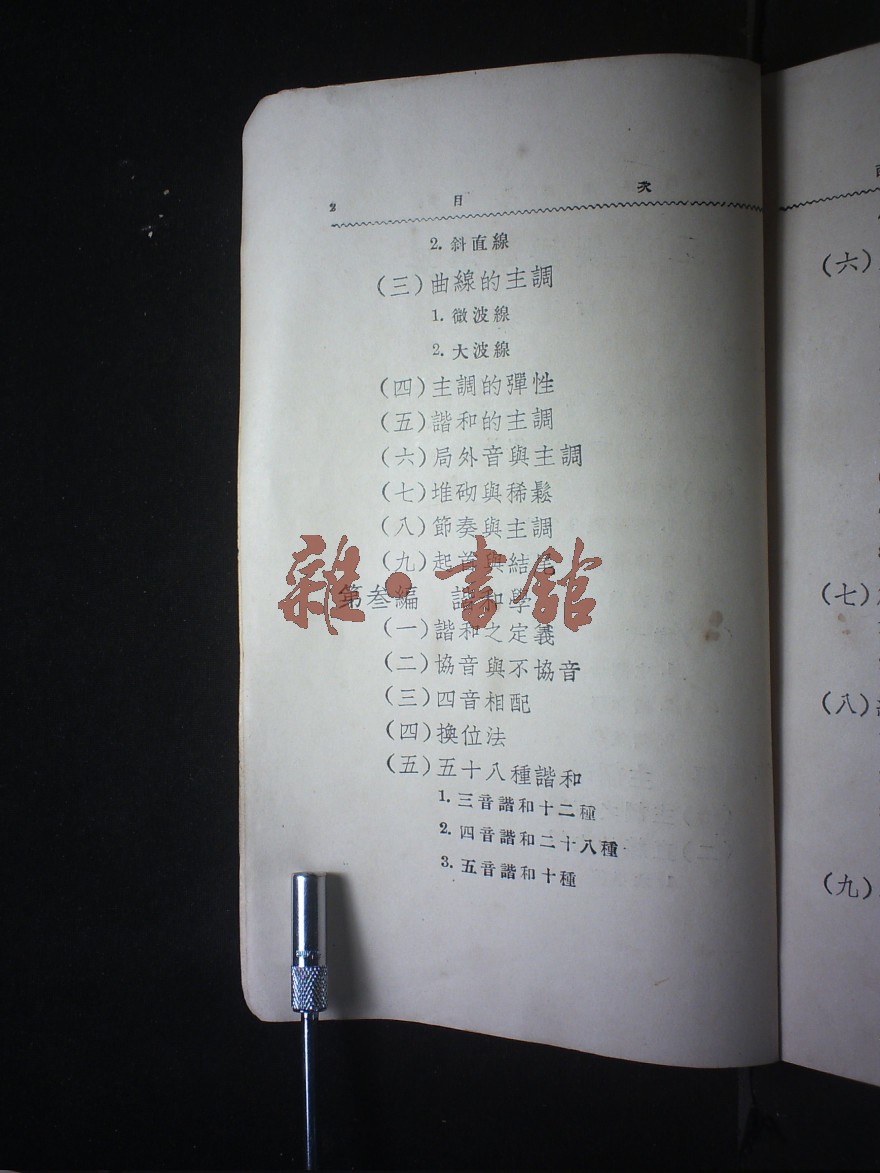 2 目 次
2. 斜直線
(三)曲線的主調
1. 微波線
2. 大波線
(四)主調的彈性
(五)諧和的主調
(六)局外音與主調
(七)堆砌與稀鬆
(八)節奏與主調
(九)起首與結尾
第叄編 諧和學
(一)諧和之定義
(二)協音與不協音
(三)四音相配
(四)換位法
(五)五十八種諧和
1. 三音諧和十二種
2. 四音諧和二十八種
3. 五音諧和十種
雜·書館
(六)
(七)
(八)
(九)